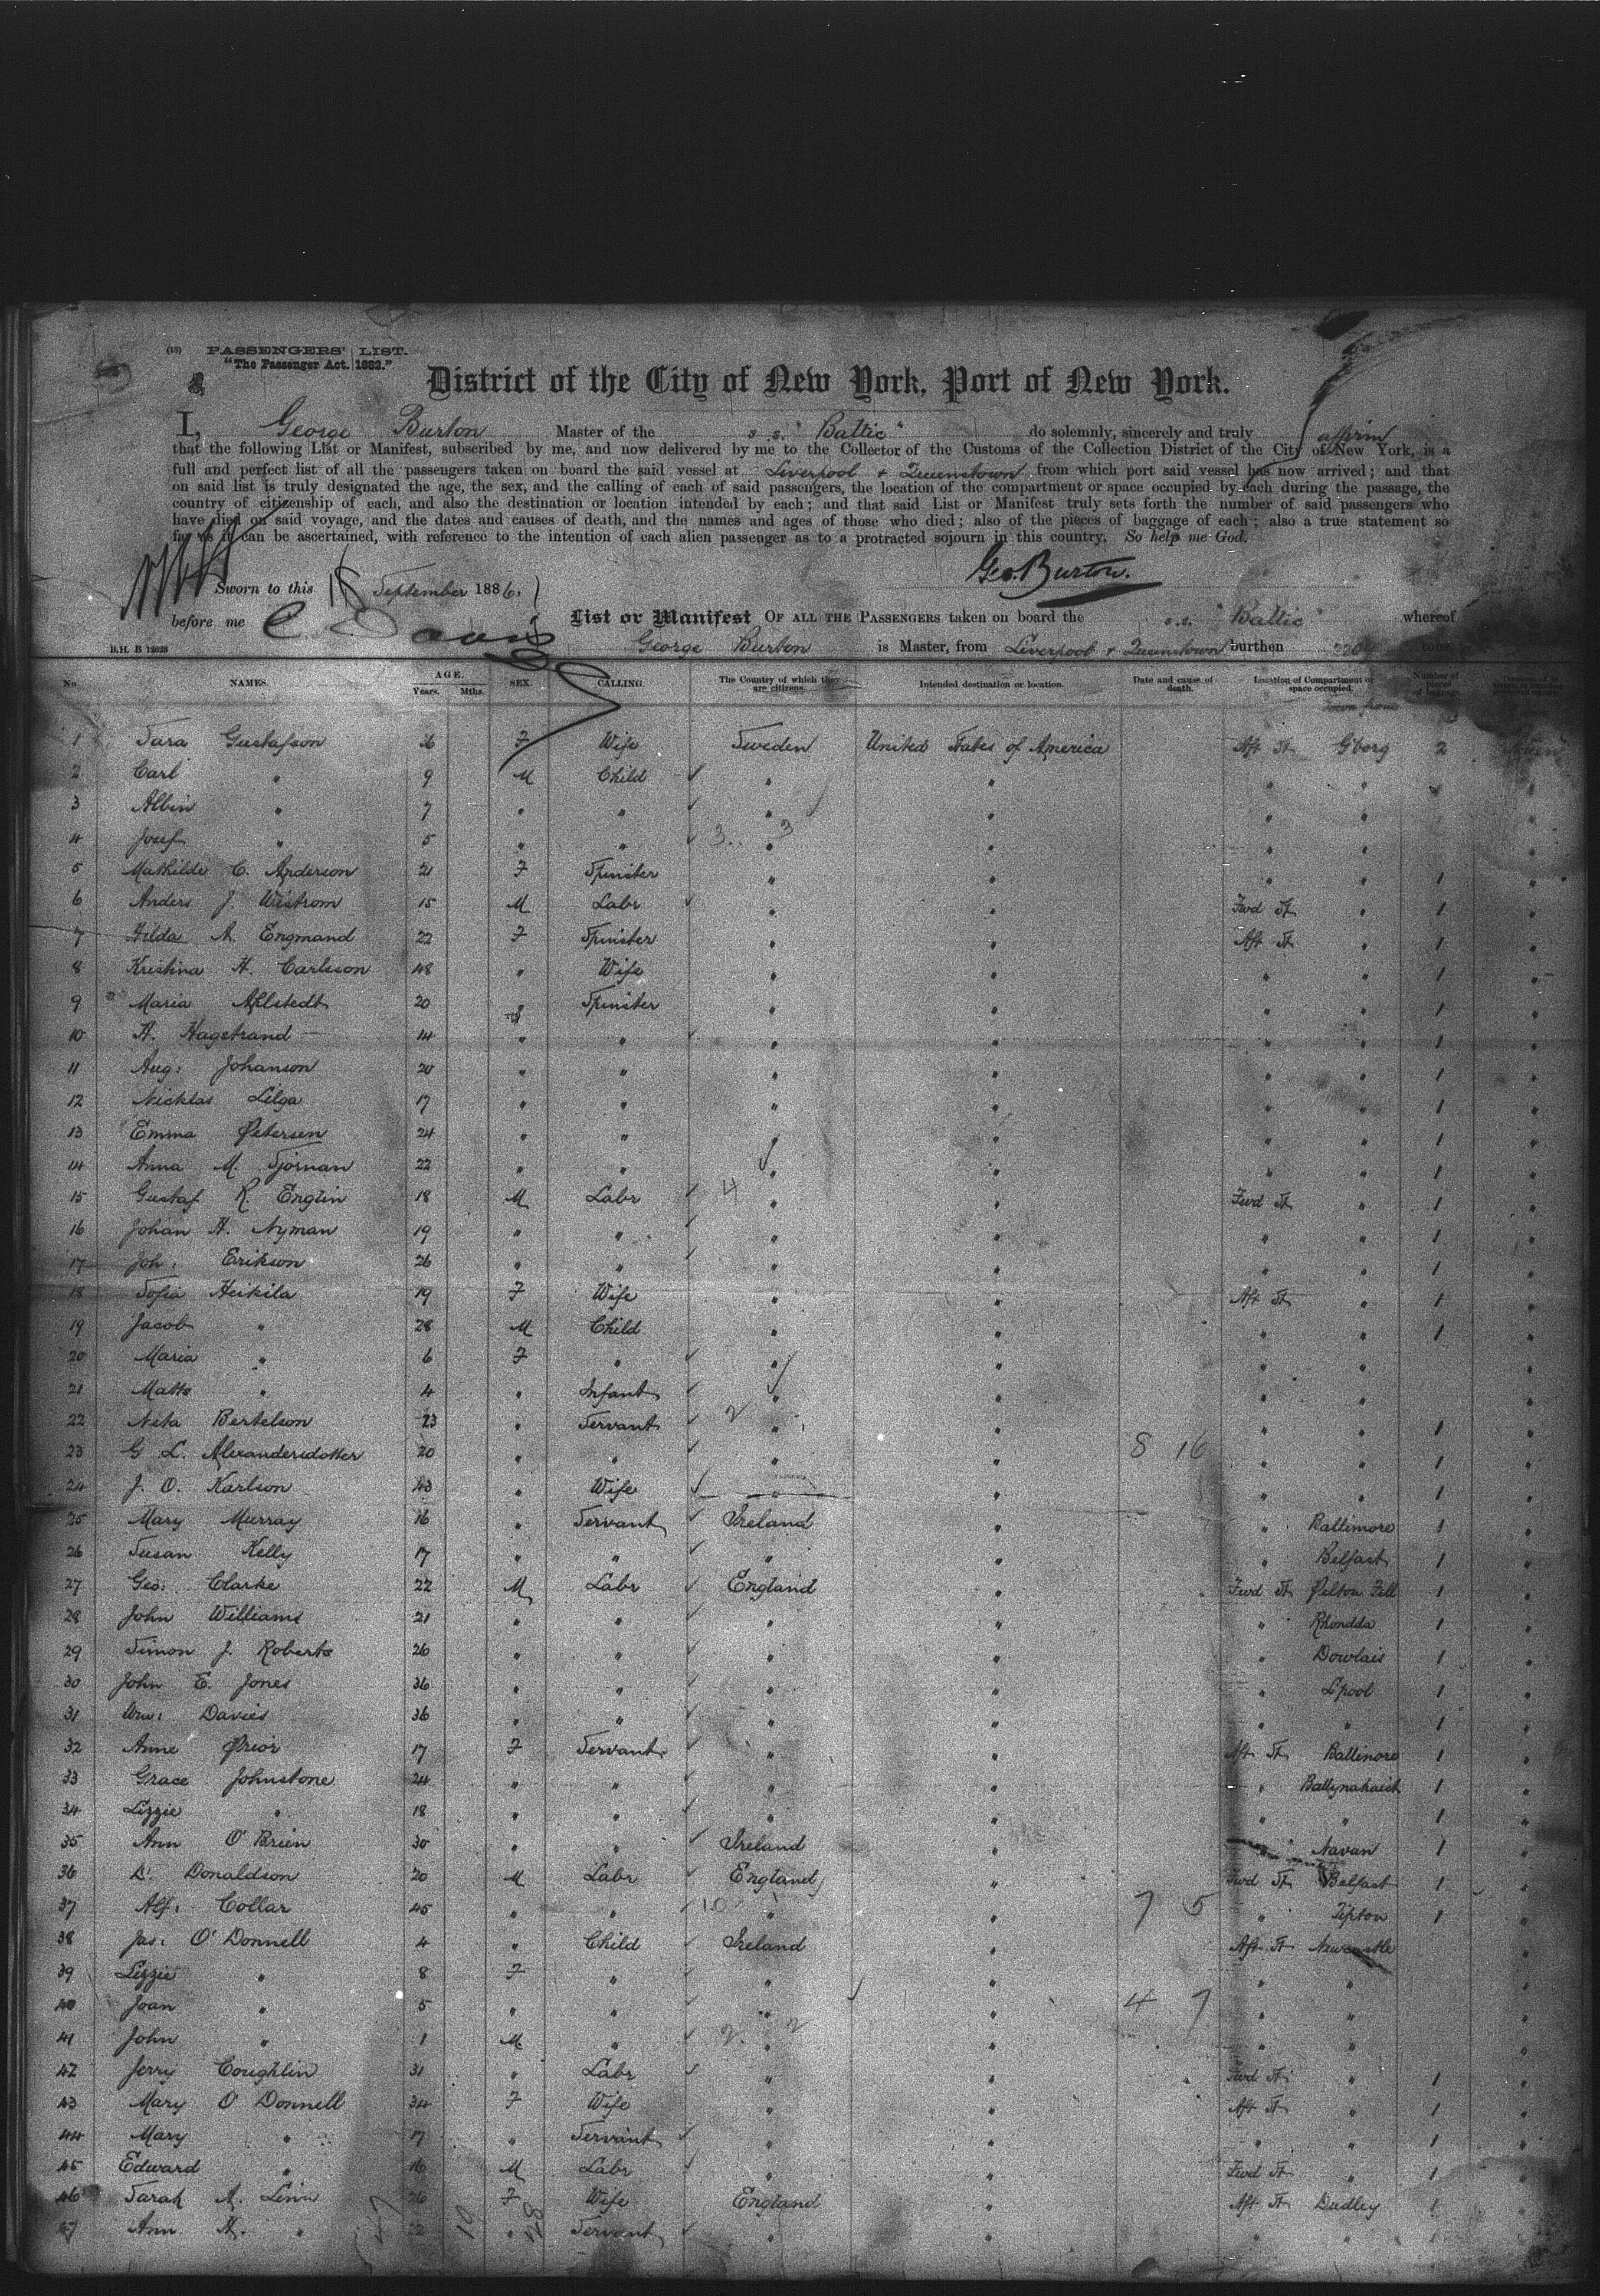 (18) PASSENGERS' LIST.
"The Passenger Act. 1882."
District of the City of New York, Port of New York.
I, George Burton Master of the s.s. "Baltic" do solemnly, sincerely and truly affirm
that the following List or Manifest, subscribed by me, and now delivered by me to the Collector of the Customs of the Collection District of the City of New York, is a
full and perfect list of all the passengers taken on board the said vessel at Liverpool + Queenstown from which port said vessel has now arrived; and that
on said list is truly designated the age, the sex, and the calling of each of said passengers, the location of the compartment or space occupied by each during the passage, the
country of citizenship of each, and also the destination or location intended by each; and that said List or Manifest truly sets forth the number of said passengers who
have died on said voyage, and the dates and causes of death, and the names and ages of those who died; also of the pieces of baggage of each; also a true statement so
far as it can be ascertained, with reference to the intention of each alien passenger as to a protracted sojourn in this country. So help me God.
Geo. Burton.
Sworn to this 18 September 1886.
before me C Davis
List or Manifest OF ALL THE PASSENGERS taken on board the s.s. "Baltic" whereof
B.H. B 12628 George Burton is Master, from Liverpool + Queenstown burthen tons
No. NAMES. AGE. Years. Mths. SEX. CALLING. The Country of which they are citizens. Intended destination or location. Date and cause of death. Location of Compartment or space occupied. Number of pieces of baggage.
1 Sara Gustafson 36 F Wife Sweden United States of America Aft St G'borg 2
2 Carl " 9 M Child " " " "
3 Albin " 7 " " " " " "
4 Josef " 5 " " " " " "
5 Mathilde C. Anderson 21 F Spinster " " " " 1 "
6 Anders J. Wistrom 15 M Labr " " Fwd St " 1 "
7 Hilda A. Engmand 22 F Spinster " " Aft St " 1 "
8 Kristina H. Carlsson 48 " Wife " " " " 1 "
9 Maria Ahlstedt 20 " Spinster " " " " 1 "
10 H. Hagstrand 14 " " " " " " 1 "
11 Aug: Johanson 20 " " " " " " 1 "
12 Nicklas Lilga 17 " " " " " " 1 "
13 Emma Petersen 24 " " " " " " 1 "
14 Anna M. Sjornan 22 " " " " " " 1 "
15 Gustaf R. Engtin 18 M Labr " " Fwd St " 1 "
16 Johan H. Nyman 19 " " " " " " 1 "
17 Joh: Erikson 26 " " " " " " 1 "
18 Sofia Heikila 19 F Wife " " Aft St " 1 "
19 Jacob " 28 M Child " " " " 1 "
20 Maria " 6 F " " " " " "
21 Matts " 4 " Infant " " " " "
22 Neta Bertelson 23 " Servant " " " " 1 "
23 G L. Alexandersdotter 20 " " " " 8 16 " " 1 "
24 J. O. Karlson 43 " Wife " " " " 1 "
25 Mary Murray 16 " Servant Ireland " " Ballimore 1 "
26 Susan Kelly 17 " " " " " Belfast 1 "
27 Geo: Clarke 22 M Labr England " Fwd St Pelton Fell 1 "
28 John Williams 21 " " " " " Rhondda 1 "
29 Simon J. Roberts 26 " " " " " Dowlais 1 "
30 John E. Jones 36 " " " " " L'pool 1 "
31 Wm: Davies 36 " " " " " " 1 "
32 Anne Prior 17 F Servant " " Aft St Ballinore 1 "
33 Grace Johnstone 24 " " " " " 1 "
34 Lizzie " 18 " " " " " " 1 "
35 Ann O'Brien 30 " " Ireland " " Navan 1 "
36 D. Donaldson 20 M Labr England " Fwd St Belfast 1 "
37 Alf: Collar 45 " " 10 " " 7 5 " Tipton 1 "
38 Jas: O'Donnell 4 " Child Ireland " Aft St Newcastle "
39 Lizzie " 8 F " " " " " "
40 Joan " 5 " " " " 4 7 " " "
41 John " 1 M " " " " " "
42 Jerry Coughlin 31 " Labr " " Fwd St " 1 "
43 Mary O'Donnell 34 F Wife " " Aft St " 1 "
44 Mary " 17 " Servant " " " " 1 "
45 Edward " 16 M Labr " " Fwd St " 1 "
46 Sarah A. 26 F Wife England " Aft St Dudley 1 "
47 Ann H. " 22 " Servant " " " " "